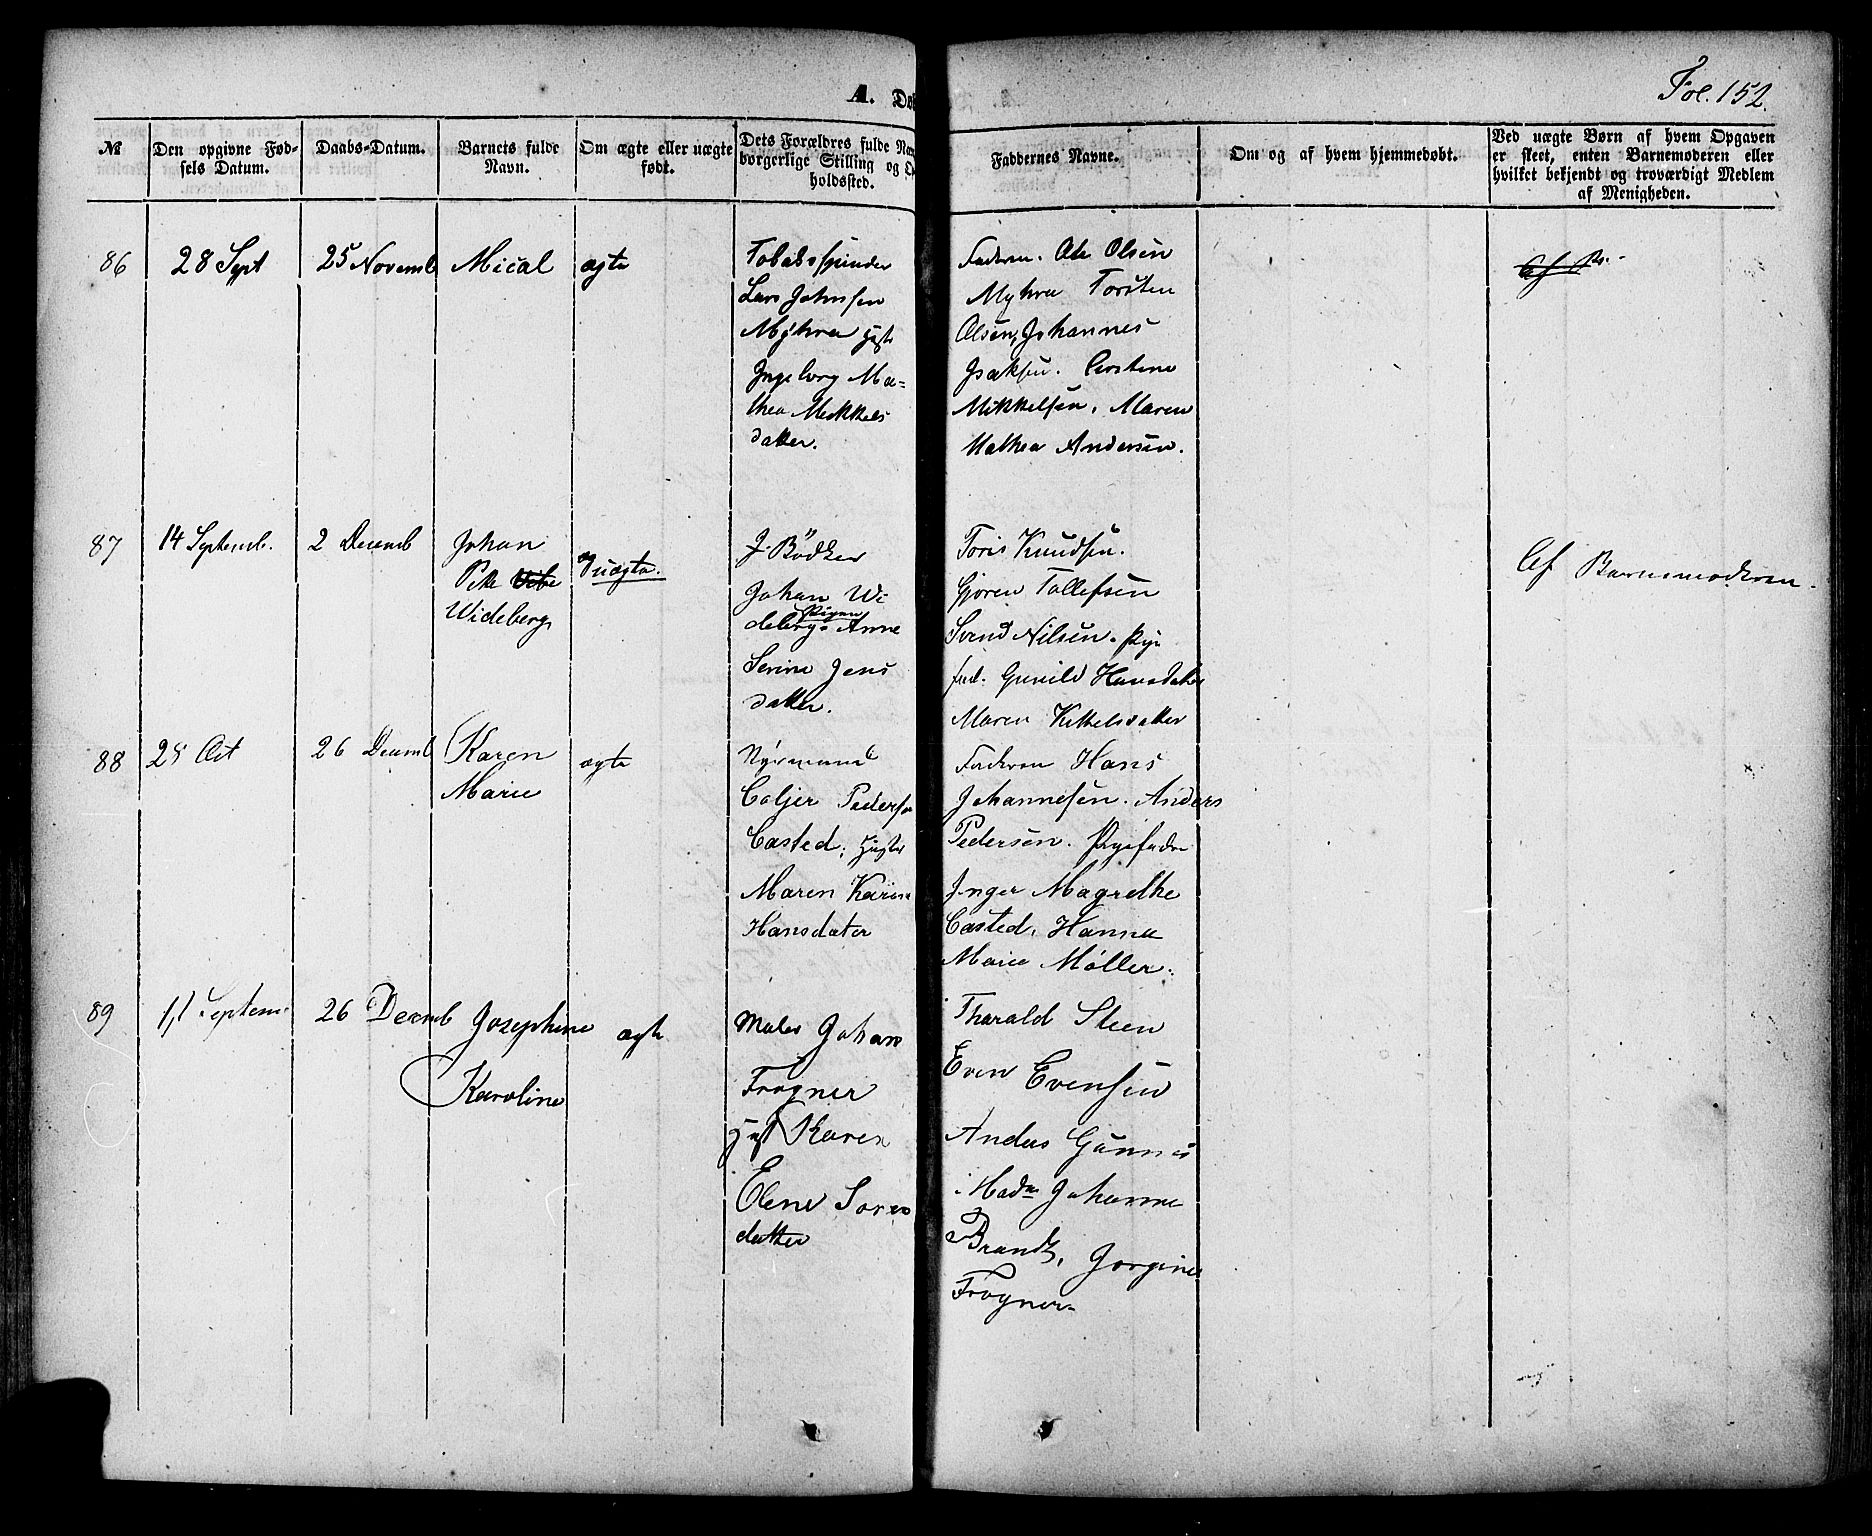 A. Dø
Fol. 152.
№
Den opgivne Fød-
sels Datum.
Daabs-Datum.
Barnets fulde
Navn.
Om ægte eller uægte
født.
Dets Forældres fulde Nav
borgerlige Stilling og O
holdssted.
Faddernes Navne.
Om og af hvem hjemmedøbt.
Ved uægte Børn af hvem Opgaven
er skeet, enten Barnemoderen eller
hvilket bekjendt og troværdigt Medlem
af Menigheden.
86
28 Sept
25 Novemb
Mical
ægte
Tobaksspinder
Lars Johnsen
Myhra
Ingeborg Ma=
thea Mikkels
datter.
Faderen. Ole Olsen
Myhra Torsten
Olsen, Johannes
Isaksen. Cirstine
Mikkelsen, Maren
Mathea Andersen.
Af
87
14 Septemb.
2 Decemb
Johan
Vibe
Wideberg
uægte.
Bødker
Johan Wi
Pigen
deberg= Anne
Serine Jens
datter.
Toris Knudsen.
Gjøren Tollefsen
Svend Nilsen. Pige
fad. Gunild Hansdatter
Maren Kittelsdatter
Af Barnemoderen.
88
25 Oct
26 Decemb
Karen
Marie
ægte
Coljer Pederse
Casted,
Maren Karine
Hansdater
Faderen Hans
Johannesen. Anders
Pedersen. Pigefadr
Inger Magrethe
Casted, Hanna
Marie Møller.
89
11 Septem
26 Decmb
Josephine
Karoline
ægte
Maler Johan
Frogner
Karen
Elene Soren
datter
Tharald Steen
Even Evensen
Anders Gunnes
Madm Johanne
Brandt, Jorgine
Frogner.